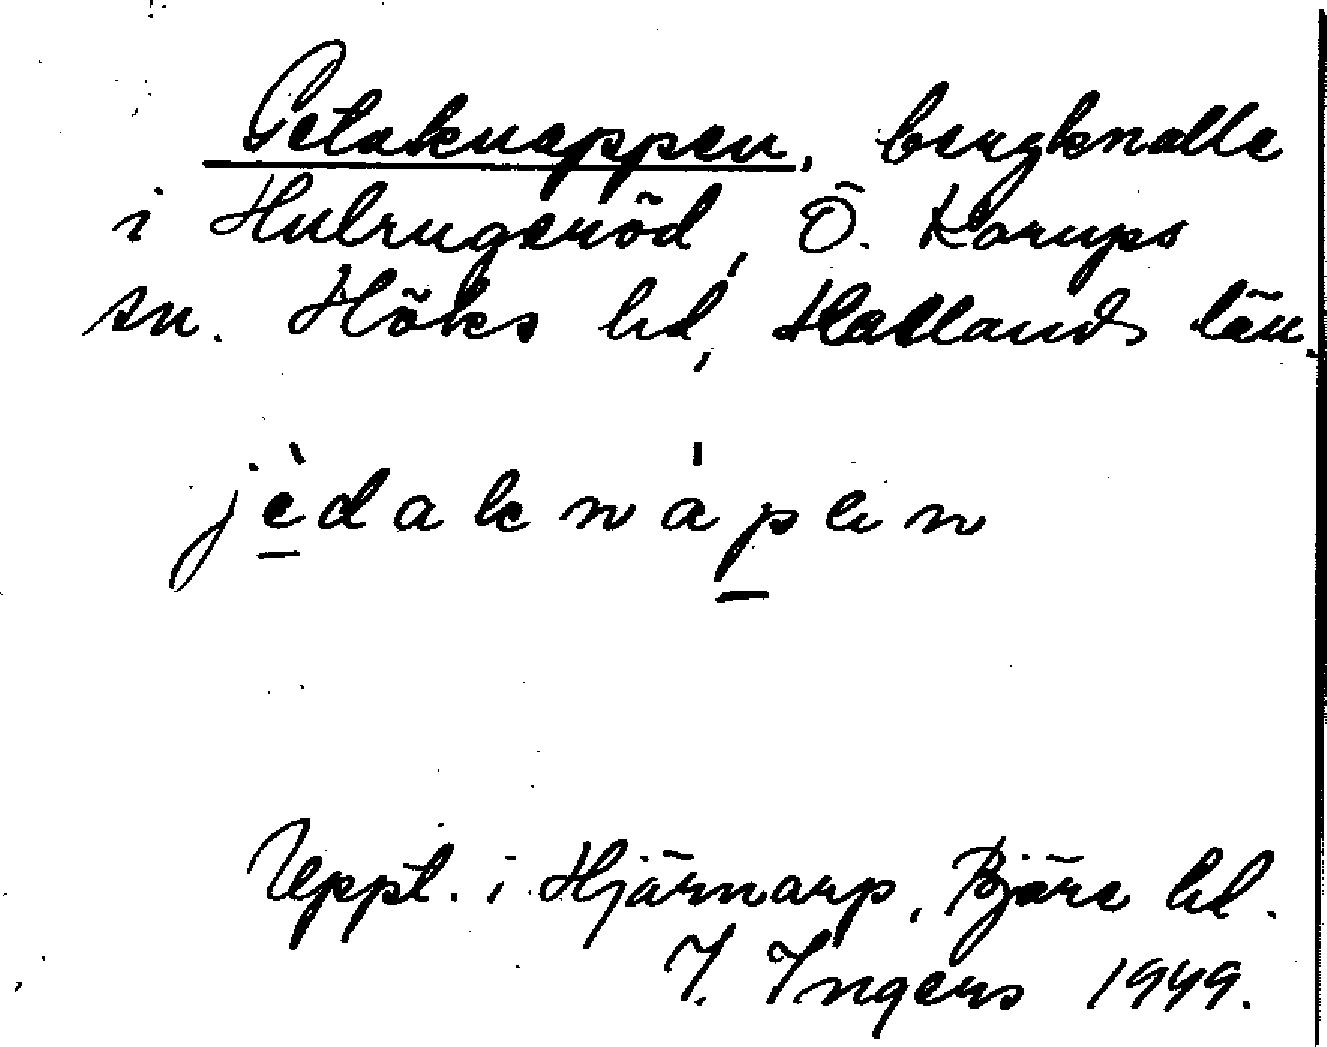 Getaknappen, bergknalle
i Hulrugeröd, Ö. Karups
sn. Höks hd, Hallands län.
jèdaknápen
Uppt. i Hjärnarp, Bjäre hd.
I. Ingers 1949.